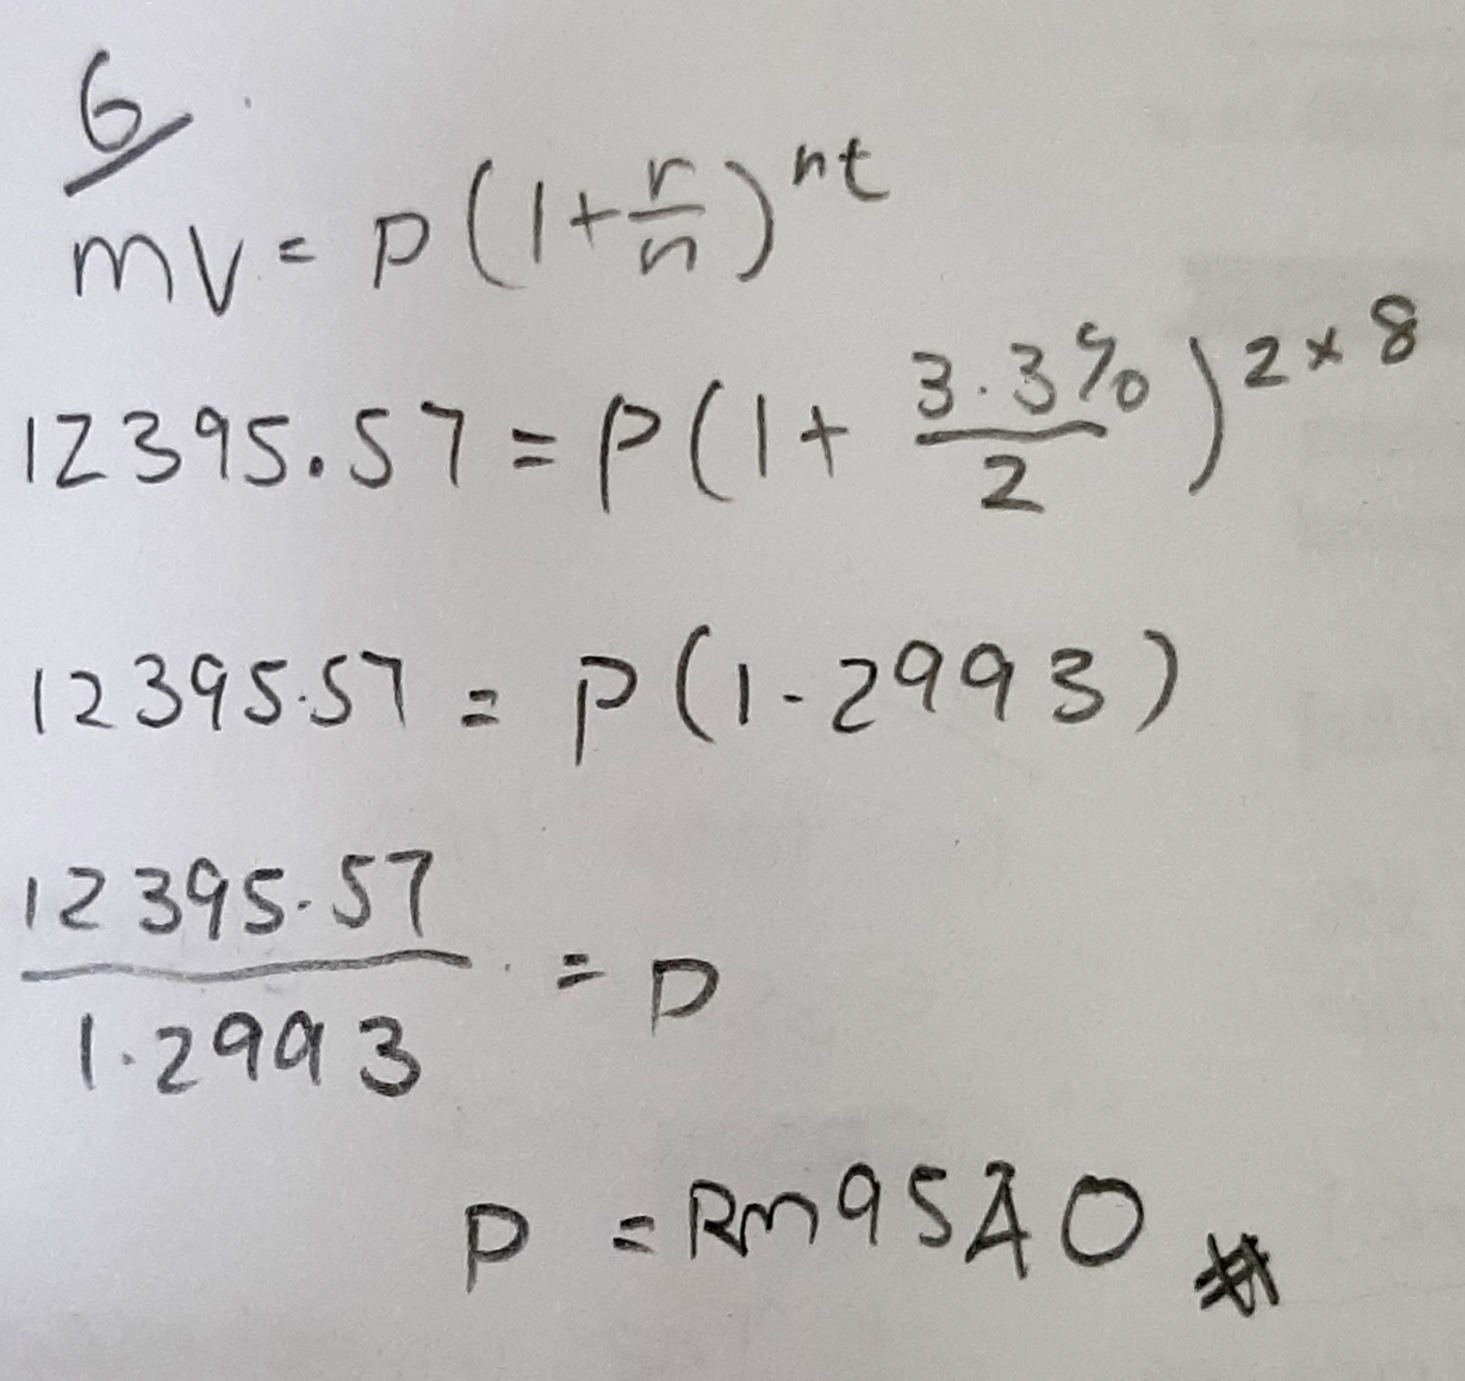 6
mv = P(1+r/n)^nt
12395.57 = P(1+ 3.3%/2)^2×8
12395.57 = P(1.2993)
12395.57/1.2993 = P
P = Rm9540 #